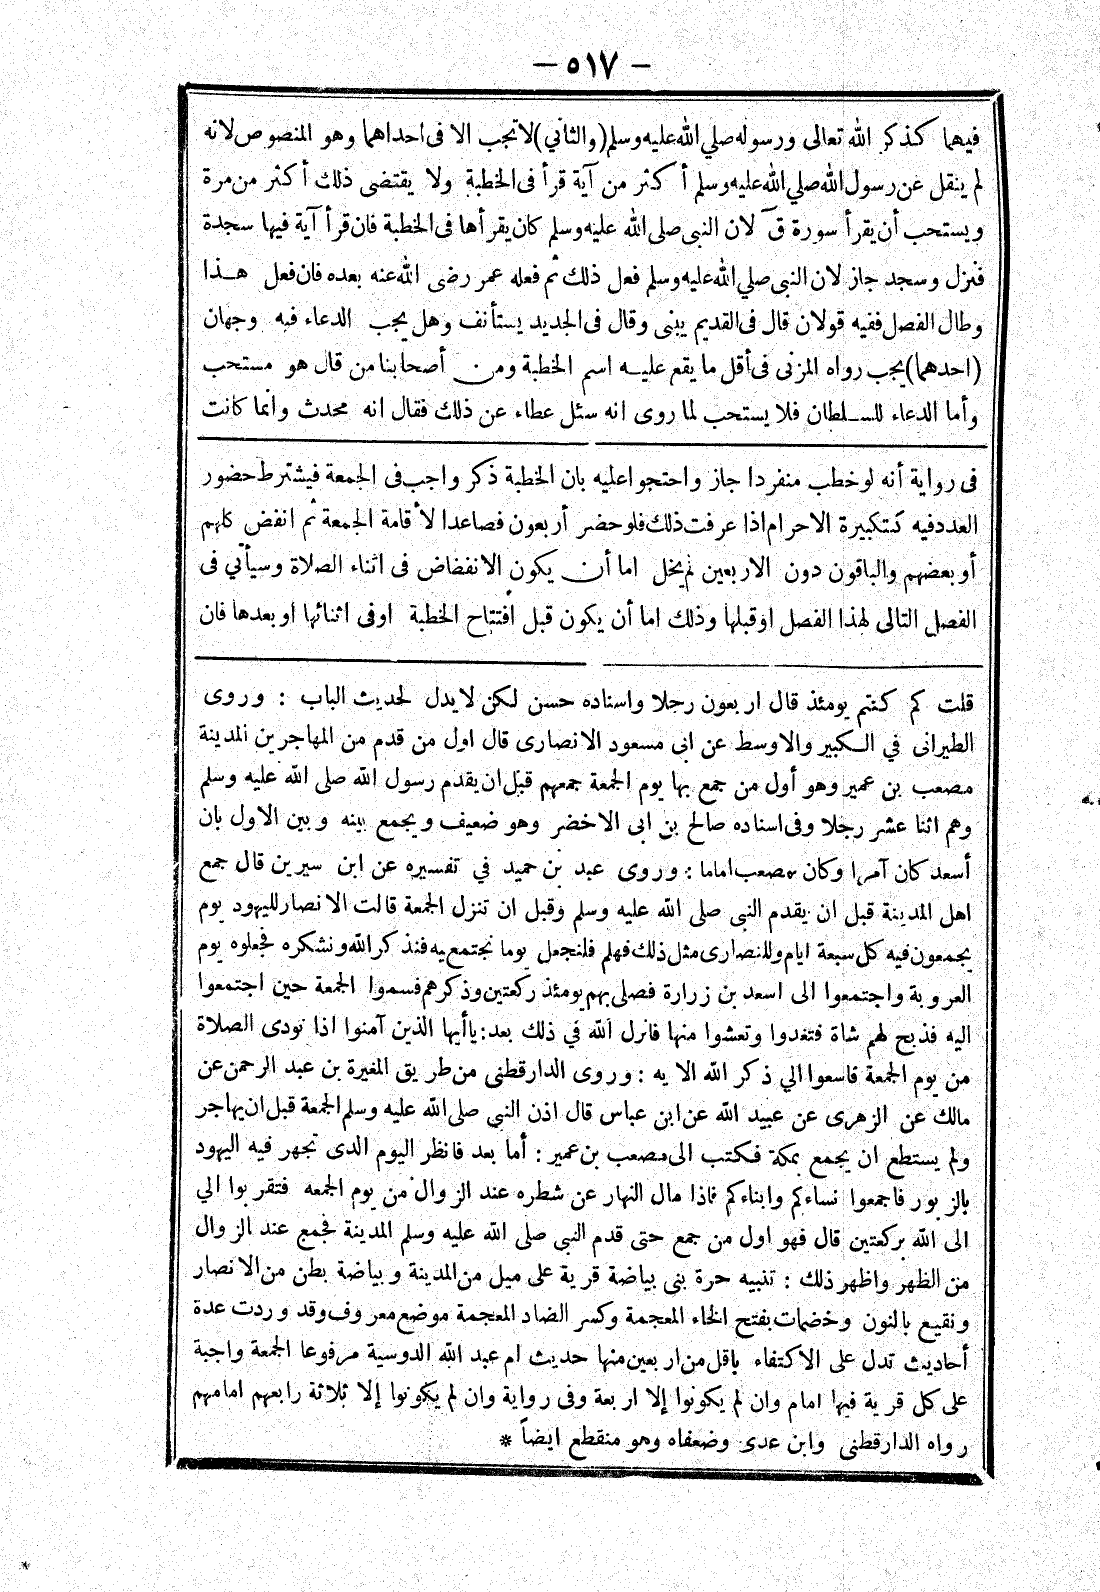 — ٥١٧ —
فيهما كذكر الله تعالى ورسوله صلي الله عليه وسلم (والثاني) لا تجب الا فى احداهما وهو المنصوص لانه
لم ينقل عن رسول الله صلي الله عليه وسلم أكثر من آية قرأ فى الخطبة ولا يقتضى ذلك أكثر من مرة
ويستحب أن يقرأ سورة قٓ لان النبى صلى الله عليه وسلم كان يقرأها فى الخطبة فان قرأ آية فيها سجدة
فنزل وسجد جاز لان النبى صلي الله عليه وسلم فعل ذلك ثم فعله عمر رضى الله عنه بعده فان فعل هذا
وطال الفصل ففيه قولان قال فى القديم يبنى وقال فى الجديد يستأنف وهل يجب الدعاء فيه وجهان
(احدهما) يجب رواه المزنى فى أقل ما يقع عليه اسم الخطبة ومن أصحابنا من قال هو مستحب
وأما الدعاء للسلطان فلا يستحب لما روى انه سئل عطاء عن ذلك فقال انه محدث وانما كانت
فى رواية أنه لو خطب منفردا جاز واحتجوا عليه بان الخطبة ذكر واجب فى الجمعة فيشترط حضور
العدد فيه كتكبيرة الاحرام اذا عرفت ذلك فلو حضر أربعون فصاعدا لأقامة الجمعة ثم انفض كلهم
أو بعضهم والباقون دون الاربعين لم يخل اما أن يكون الانفضاض فى اثناء الصلاة وسيأتي فى
الفصل التالى لهذا الفصل او قبلها وذلك اما أن يكون قبل افتتاح الخطبة او فى اثنائها او بعدها فان
قلت كم كنتم يومئذ قال اربعون رجلا واسناده حسن لكن لا يدل لحديث الباب : وروى
الطبرانى في الكبير والاوسط عن ابى مسعود الانصارى قال اول من قدم من المهاجرين المدينة
مصعب بن عمير وهو أول من جمع بها يوم الجمعة جمعهم قبل ان يقدم رسول الله صلى الله عليه وسلم
وهم اثنا عشر رجلا وفى اسناده صالح بن ابى الاخضر وهو ضعيف ويجمع بينه وبين الاول بان
أسعد كان آمرا وكان مصعب اماما : وروى عبد بن حميد في تفسيره عن ابن سيرين قال جمع
اهل المدينة قبل ان يقدم النبى صلى الله عليه وسلم وقبل ان تنزل الجمعة قالت الانصار لليهود يوم
يجمعون فيه كل سبعة ايام وللنصارى مثل ذلك فهلم فلنجعل يوما نجتمع فيه فنذكر الله ونشكره فجعلوه يوم
العروبة واجتمعوا الى اسعد بن زرارة فصلى بهم يومئذ ركعتين وذكرهم فسموا الجمعة حين اجتمعوا
اليه فذبح لهم شاة فتغدوا وتعشوا منها فانزل الله في ذلك بعد : ياأيها الذين آمنوا اذا نودى الصلاة
من يوم الجمعة فاسعوا الي ذكر الله الايه : وروى الدارقطنى من طريق المغيرة بن عبد الرحمن عن
مالك عن الزهرى عن عبيد الله عن ابن عباس قال اذن النبي صلى الله عليه وسلم الجمعة قبل ان يهاجر
ولم يستطع ان يجمع بمكة فكتب الى مصعب بن عمير : أما بعد فانظر اليوم الذى تجهر فيه اليهود
بالزبور فاجمعوا نساءكم وابناءكم فاذا مال النهار عن شطره عند الزوال من يوم الجمعه فتقربوا الي
الى الله بركعتين قال فهو اول من جمع حتى قدم النبى صلى الله عليه وسلم المدينة فجمع عند الزوال
من الظهر واظهر ذلك : تنبيه حرة بنى بياضة قرية على ميل من المدينة وبياضة بطن من الانصار
ونقيع بالنون وخضمات بفتح الخاء المعجمة وكسر الضاد المعجمة موضع معروف وقد وردت عدة
أحاديث تدل على الاكتفاء باقل من اربعين منها حديث ام عبد الله الدوسية مرفوعا الجمعة واجبة
على كل قرية فيها امام وان لم يكونوا إلا اربعة وفى رواية وان لم يكونوا إلا ثلاثة رابعهم امامهم
رواه الدارقطنى وابن عدى وضعفاه وهو منقطع ايضاً *